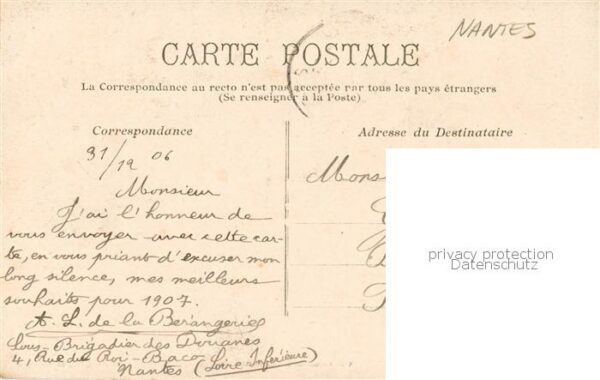 NANTES
CARTE POSTALE
La Correspondance au recto n'est pas acceptée par tous les pays étrangers
(Se renseigner à la Poste)
Correspondance
Adresse du Destinataire
31/12 06
Monsieur
J'ai l'honneur de
vous envoyer avec cette car-
te, en vous priant d'excuser mon
long silence, mes meilleurs
souhaits pour 1907.
A. L. de la Berangerie
Sous-Brigadier des Douanes
4, Rue du Roi-Baco
Nantes (Loire-Inférieure)
Mons
privacy protection
Datenschutz